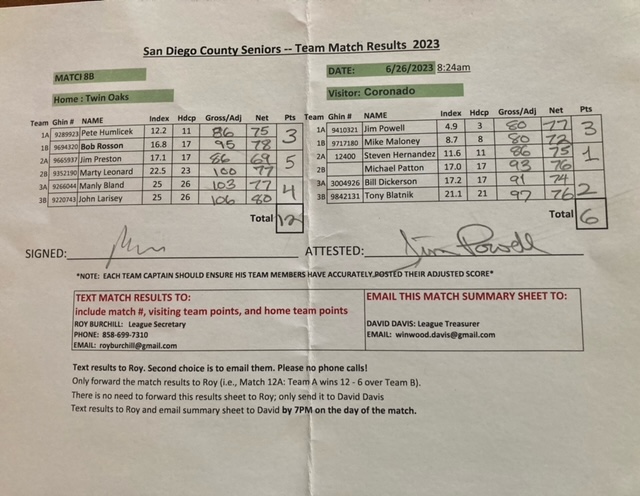 San Diego County Seniors -- Team Match Results 2023
MATCH 8B DATE: 6/26/2023 8:24am
Home : Twin Oaks Visitor: Coronado
Team Ghin # NAME Index Hdcp Gross/Adj Net Pts Team Ghin # NAME Index Hdcp Gross/Adj Net Pts
1A 9289923 Pete Humlicek 12.2 11 86 75 3 1A 9410321 Jim Powell 4.9 3 80 77 3
1B 9694320 Bob Rosson 16.8 17 95 78 1B 9717180 Mike Maloney 8.7 8 80 72
2A 9665937 Jim Preston 17.1 17 86 69 5 2A 12400 Steven Hernandez 11.6 11 86 75 1
2B 9352190 Marty Leonard 22.5 23 100 77 2B Michael Patton 17.0 17 93 76
3A 9266044 Manly Bland 25 26 103 77 4 3A 3004926 Bill Dickerson 17.2 17 91 74 2
3B 9220743 John Larisey 25 26 106 80 3B 9842131 Tony Blatnik 21.1 21 97 76
Total 12 Total 6
SIGNED: ATTESTED: Jim Powell
*NOTE: EACH TEAM CAPTAIN SHOULD ENSURE HIS TEAM MEMBERS HAVE ACCURATELY POSTED THEIR ADJUSTED SCORE*
TEXT MATCH RESULTS TO: EMAIL THIS MATCH SUMMARY SHEET TO:
include match #, visiting team points, and home team points
ROY BURCHILL: League Secretary DAVID DAVIS: League Treasurer
PHONE: 858-699-7310 EMAIL: winwood.davis@gmail.com
EMAIL: royburchill@gmail.com
Text results to Roy. Second choice is to email them. Please no phone calls!
Only forward the match results to Roy (i.e., Match 12A: Team A wins 12 - 6 over Team B).
There is no need to forward this results sheet to Roy; only send it to David Davis
Text results to Roy and email summary sheet to David by 7PM on the day of the match.